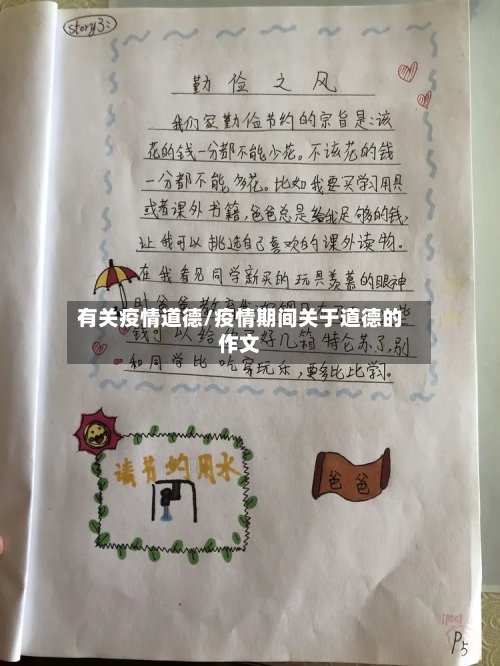 story3:
勤俭之风
我们家勤俭节约的宗旨是:该
花的钱一分都不能少花。不该花的钱
一分都不能多花。比如我要买学习用具
或者课外书籍,爸爸总是给我足够的钱,
让我可以挑选自己喜欢的课外读物。
在我看见同学新买的玩具羡慕的眼神
有关疫情道德/疫情期间关于道德的
作文
钱可以给
好几箱特仑苏了,别
和同学比吃穿玩乐,要多比比学习。
请节约用水
爸爸
P5